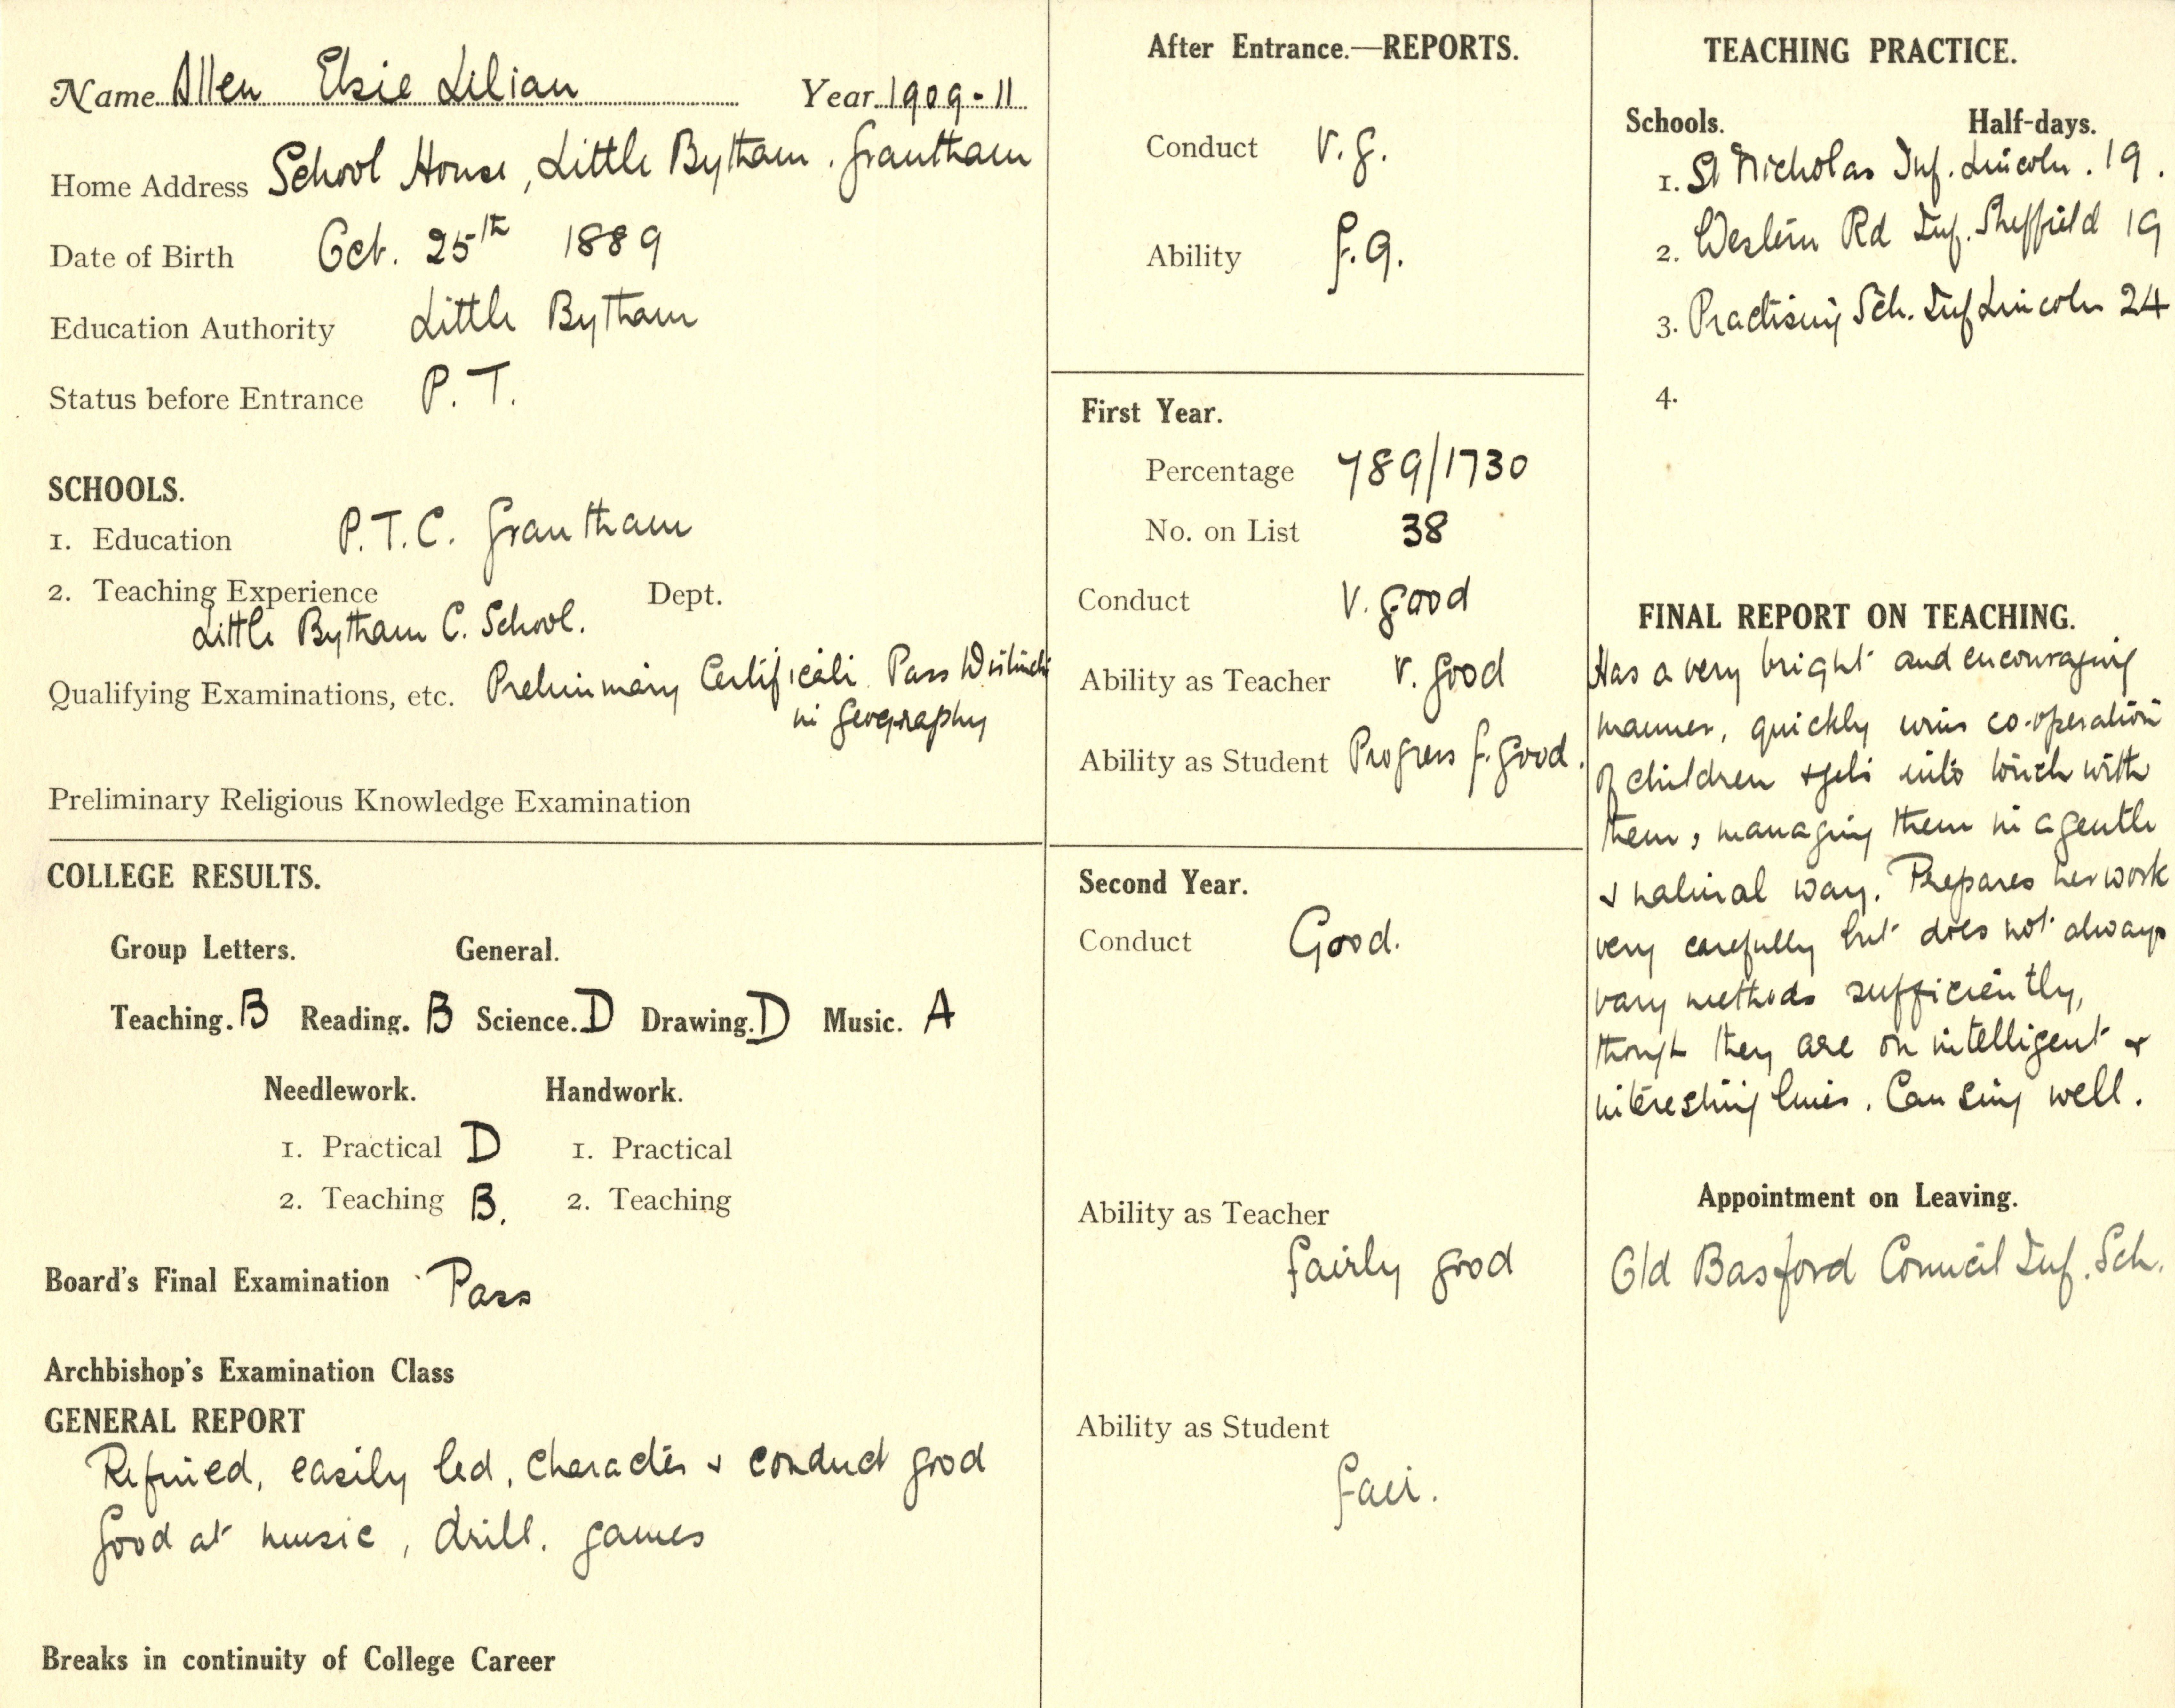 Name Allen Elsie Lilian Year 1909-11
Home Address School House, Little Bytham. Grantham
Date of Birth Oct. 25th 1889
Education Authority Little Bytham
Status before Entrance P.T.
SCHOOLS.
1. Education P.T.C. Grantham
2. Teaching Experience Dept.
Little Bytham C. School.
Qualifying Examinations, etc. Preliminary Certificate Pass
in Geography
Preliminary Religious Knowledge Examination
COLLEGE RESULTS.
Group Letters. General.
Teaching. B Reading. B Science. D Drawing. D Music. A
Needlework. Handwork.
1. Practical D 1. Practical
2. Teaching B. 2. Teaching
Board's Final Examination Pass
Archbishop's Examination Class
GENERAL REPORT
Refined, easily led, character & conduct good
Good at music, drill. games
Breaks in continuity of College Career
After Entrance.—REPORTS.
Conduct V.g.
Ability f.g.
First Year.
Percentage 789/1730
No. on List 38
Conduct V. good
Ability as Teacher V. good
Ability as Student Progress f. good.
Second Year.
Conduct Good.
Ability as Teacher
fairly good
Ability as Student
fair.
TEACHING PRACTICE.
Schools. Half-days.
1. St Nicholas Inf. Lincoln. 19.
2. Western Rd Inf. Sheffield 19
3. Practising Sch. Inf Lincoln 24
4.
FINAL REPORT ON TEACHING.
Has a very bright and encouraging
manner, quickly wins co-operation
of children & gets into touch with
them, managing them in a gentle
& natural way. Prepares her work
very carefully but does not always
vary methods sufficiently,
though they are on intelligent &
interesting lines. Can sing well.
Appointment on Leaving.
Old Basford Council Inf. Sch.